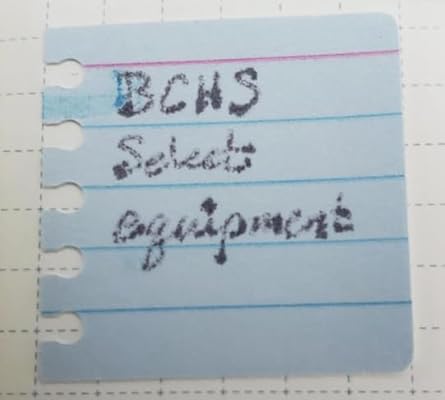 BCHS
Select
equipment